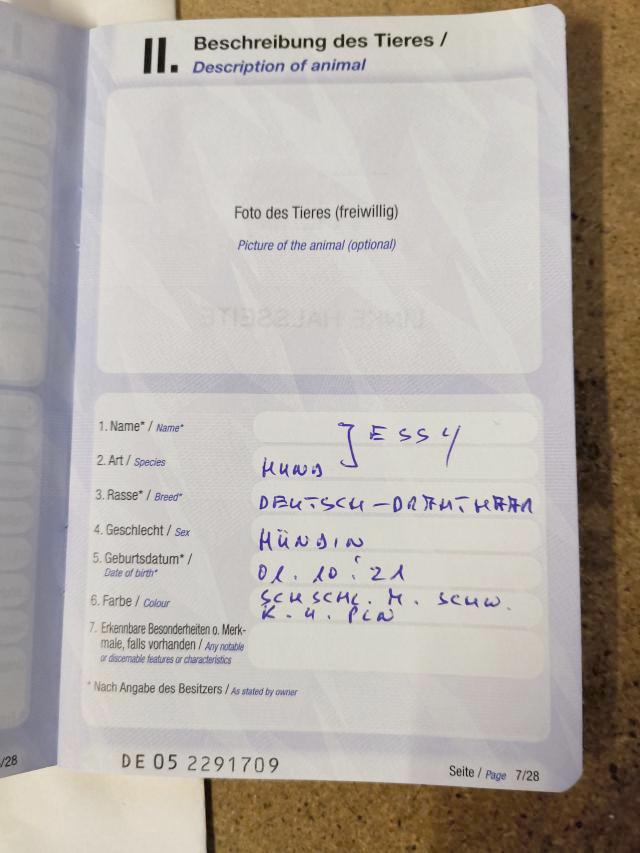 II. Beschreibung des Tieres /
Description of animal
Foto des Tieres (freiwillig)
Picture of the animal (optional)
LINKE HALSSEITE
1. Name* / Name* JESSY
2. Art / Species HUND
3. Rasse* / Breed* DEUTSCH-DRAHTHAAR
4. Geschlecht / Sex HÜNDIN
5. Geburtsdatum* /
Date of birth* 01.10.21
6. Farbe / Colour SCHSCHL. M. SCHW.
K. U. PLN
7. Erkennbare Besonderheiten o. Merk-
male, falls vorhanden / Any notable
or discernable features or characteristics
* Nach Angabe des Besitzers / As stated by owner
DE 05 2291709
Seite / Page 7/28
/28